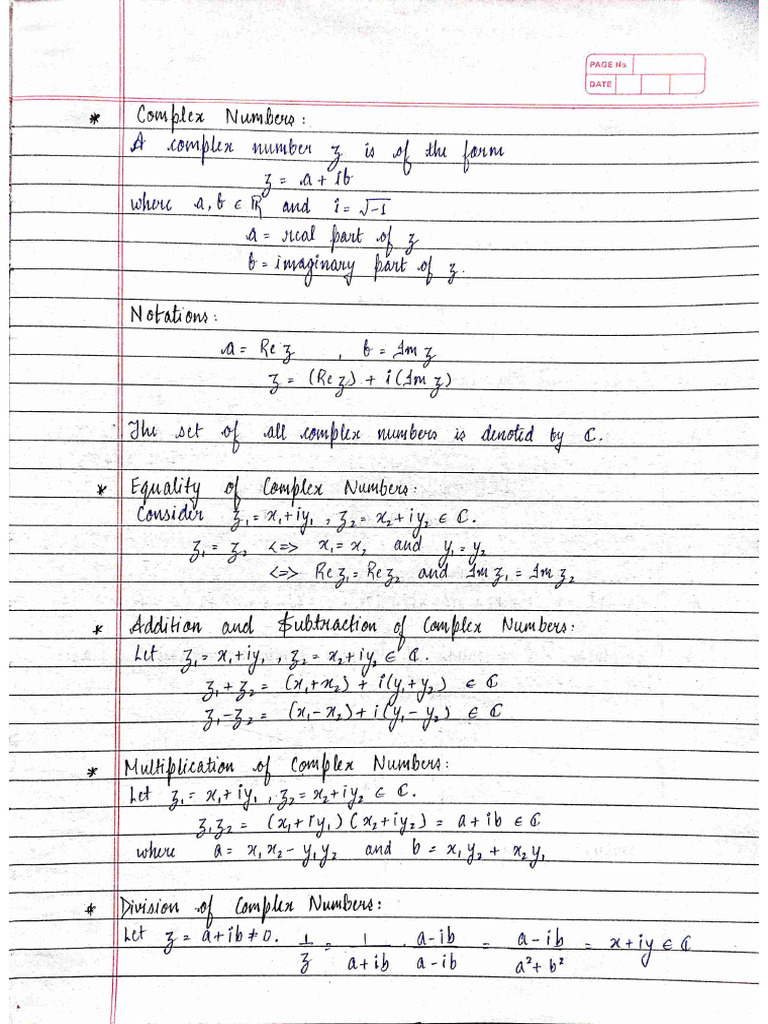 PAGE No.
DATE
* Complex Numbers:
A complex number z is of the form
z = a + ib
where a, b ∈ ℝ and i = √-1
a = real part of z
b = imaginary part of z.
Notations:
a = Re z , b = Im z
z = (Re z) + i (Im z)
The set of all complex numbers is denoted by ℂ.
* Equality of Complex Numbers:
Consider z₁ = x₁+iy₁ , z₂ = x₂+iy₂ ∈ ℂ.
z₁ = z₂ <=> x₁ = x₂ and y₁ = y₂
<=> Re z₁ = Re z₂ and Im z₁ = Im z₂
* Addition and Subtraction of Complex Numbers:
Let z₁ = x₁+iy₁ , z₂ = x₂+iy₂ ∈ ℂ.
z₁+z₂ = (x₁+x₂) + i(y₁+y₂) ∈ ℂ
z₁-z₂ = (x₁-x₂) + i(y₁-y₂) ∈ ℂ
* Multiplication of Complex Numbers:
Let z₁ = x₁+iy₁ , z₂ = x₂+iy₂ ∈ ℂ.
z₁z₂ = (x₁+iy₁) (x₂+iy₂) = a+ib ∈ ℂ
where a = x₁x₂ - y₁y₂ and b = x₁y₂ + x₂y₁
* Division of Complex Numbers:
Let z = a+ib ≠ 0. 1/z = 1/(a+ib) · (a-ib)/(a-ib) = (a-ib)/(a²+b²) = x+iy ∈ ℂ